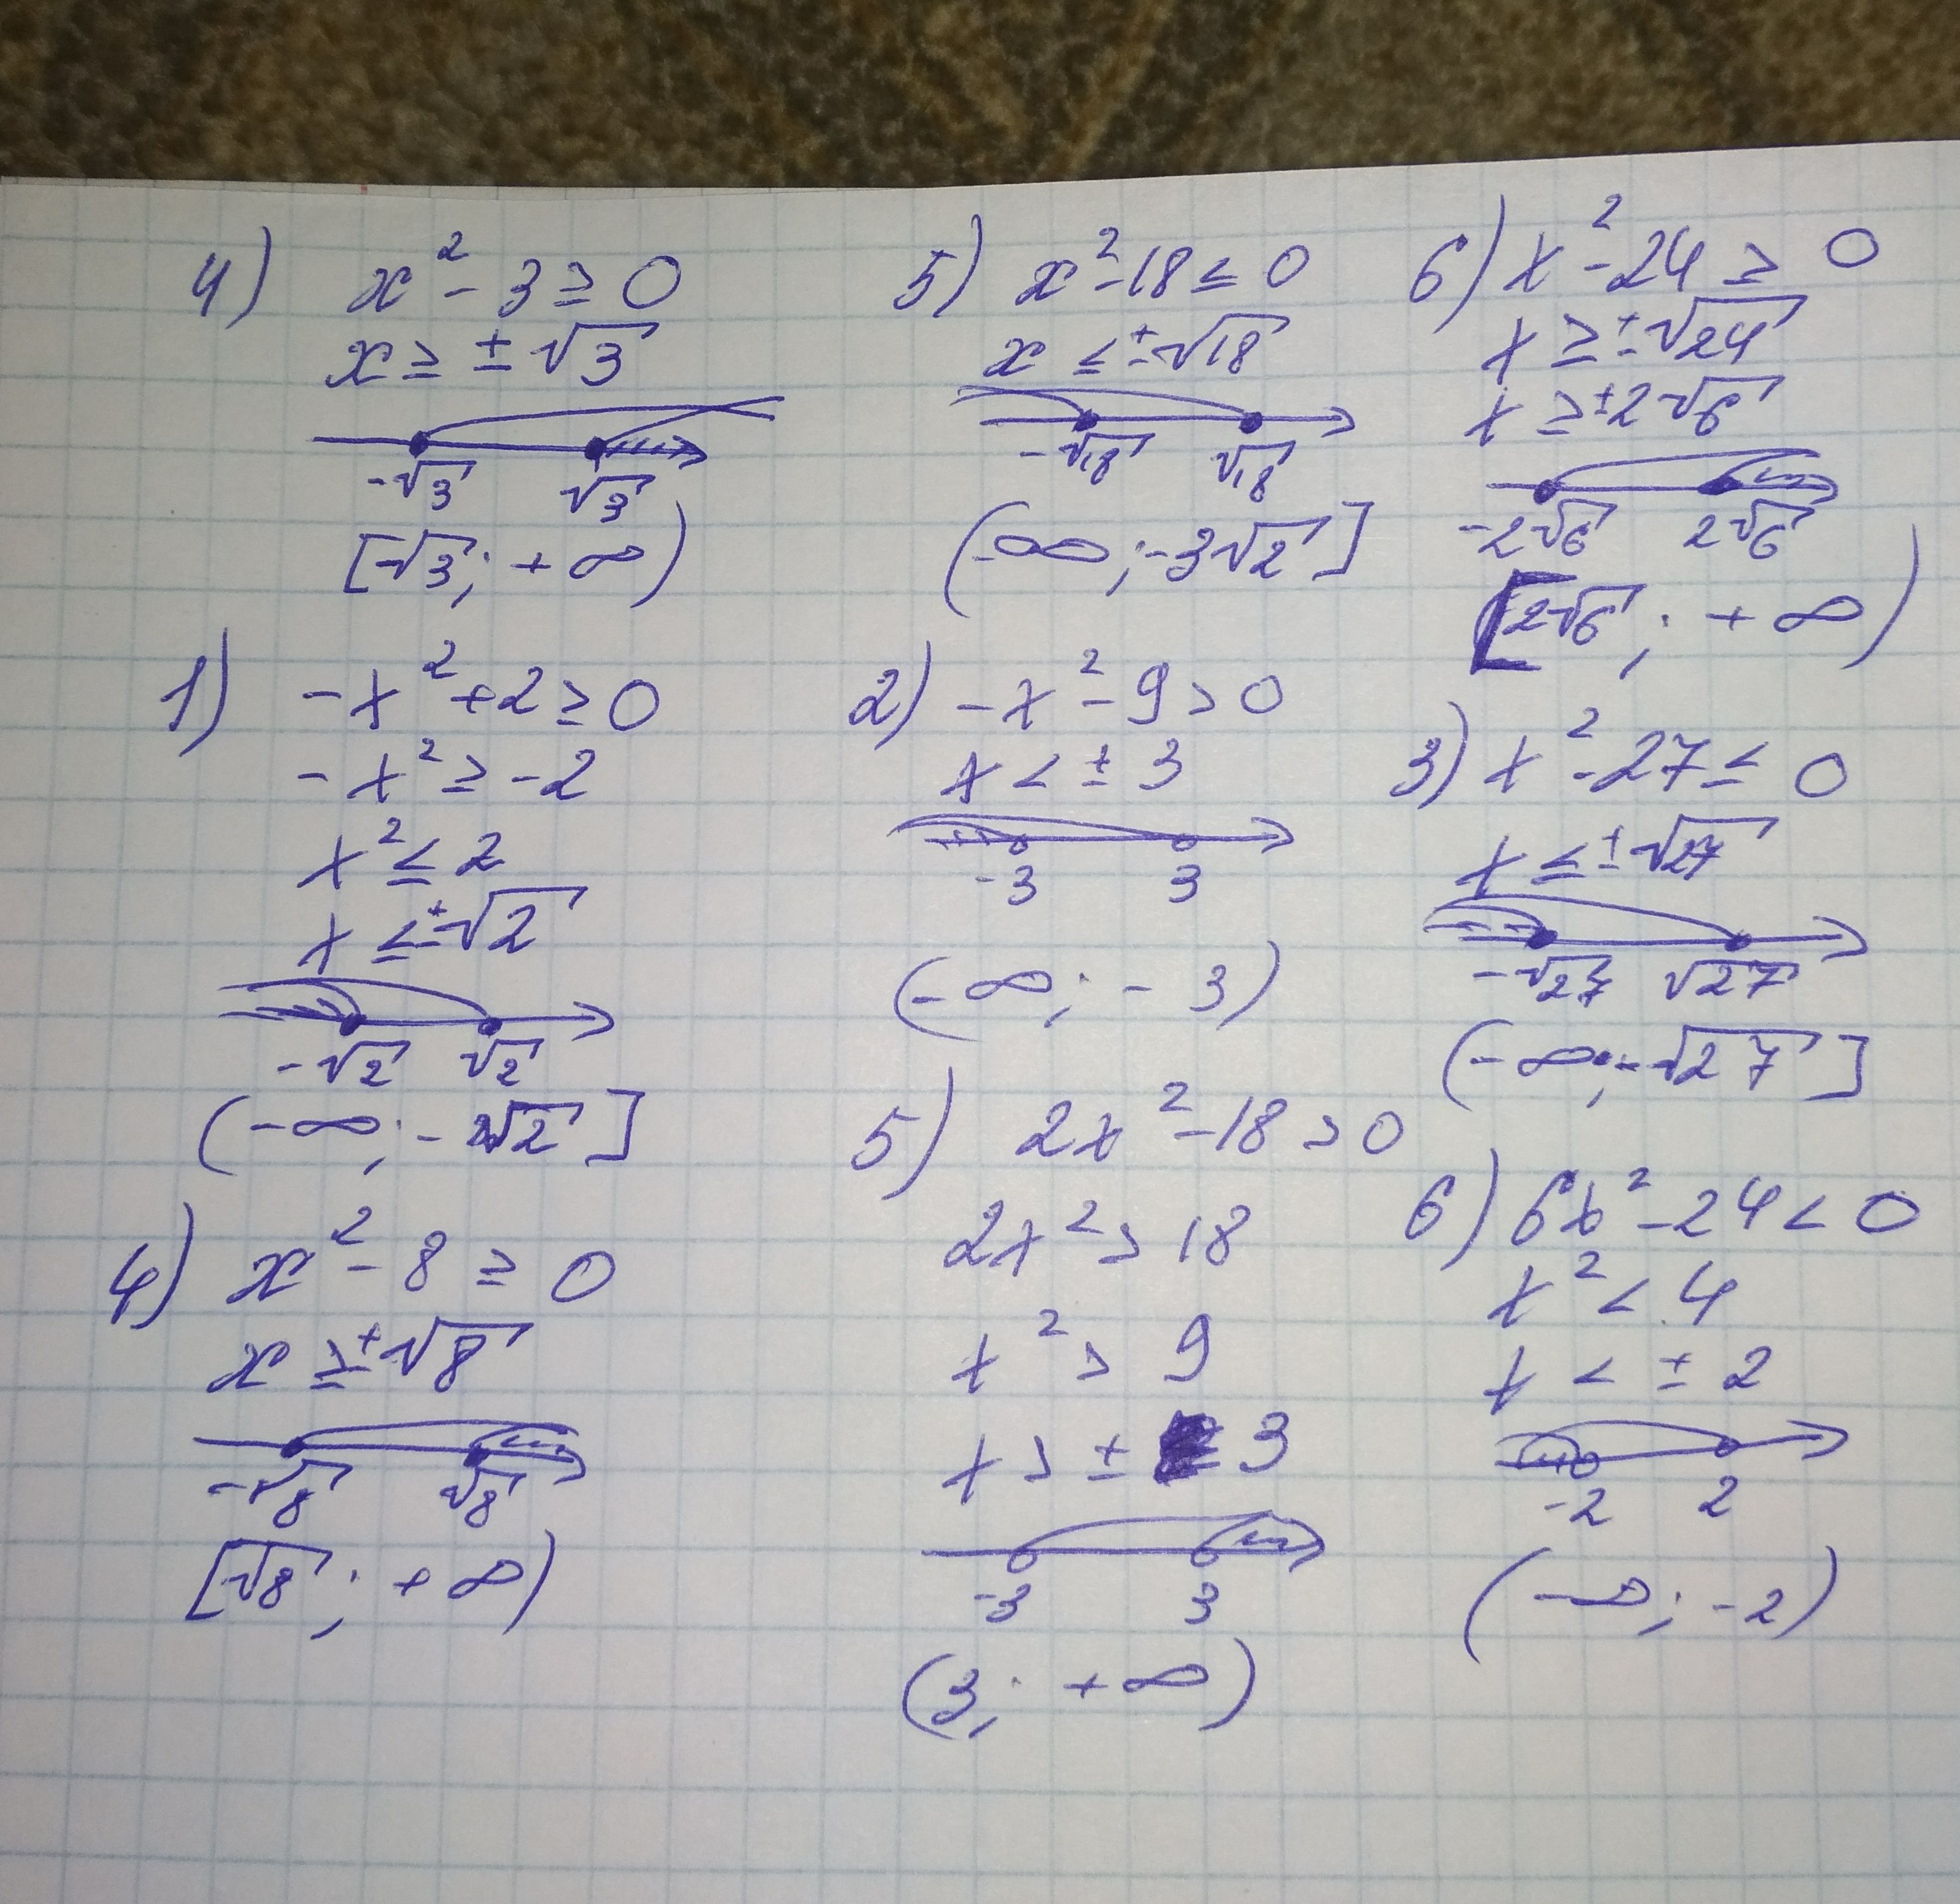 4) x² - 3 ≥ 0
x ≥ ± √3
-√3 √3
[√3; + ∞)
5) x² - 18 ≤ 0
x ≤ ± √18
-√18 √18
(-∞; -3√2]
6) x² - 24 ≥ 0
x ≥ ± √24
x ≥ ± 2√6
-2√6 2√6
[2√6; + ∞)
1) -x² + 2 ≥ 0
-x² ≥ -2
x² ≤ 2
x ≤ ± √2
-√2 √2
(-∞; -√2]
2) -x² - 9 > 0
x < ± 3
-3 3
(-∞; -3)
3) x² - 27 ≤ 0
x ≤ ± √27
-√27 √27
(-∞; -√27]
4) x² - 8 ≥ 0
x ≥ ± √8
-√8 √8
[√8; + ∞)
5) 2x² - 18 > 0
2x² > 18
x² > 9
x > ± 3
-3 3
(3; + ∞)
6) 6x² - 24 < 0
x² < 4
x < ± 2
-2 2
(-∞; -2)